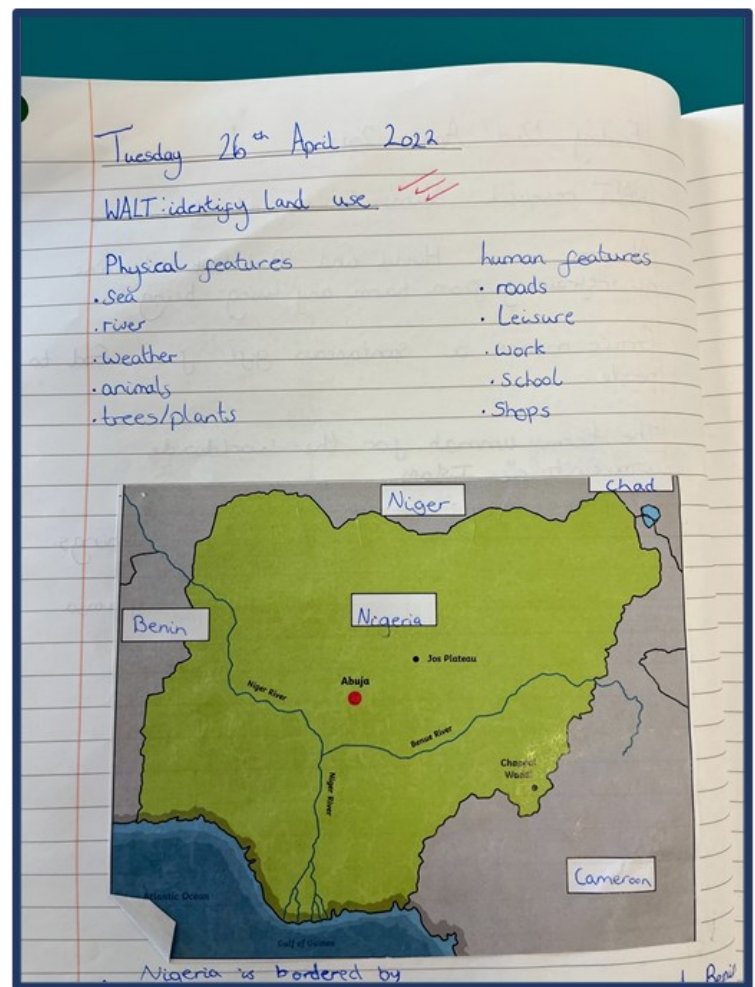 Tuesday 26th April 2022
WALT: identify land use
Physical features
• Sea
• river
• weather
• animals
• trees/plants
human features
• roads
• Leisure
• work
• School
• Shops
Chad
Niger
Benin
Nigeria
Jos Plateau
Abuja
Niger River
Benue River
Chappal
Niger River
Cameroon
Atlantic Ocean
Gulf of Guinea
Nigeria is bordered by